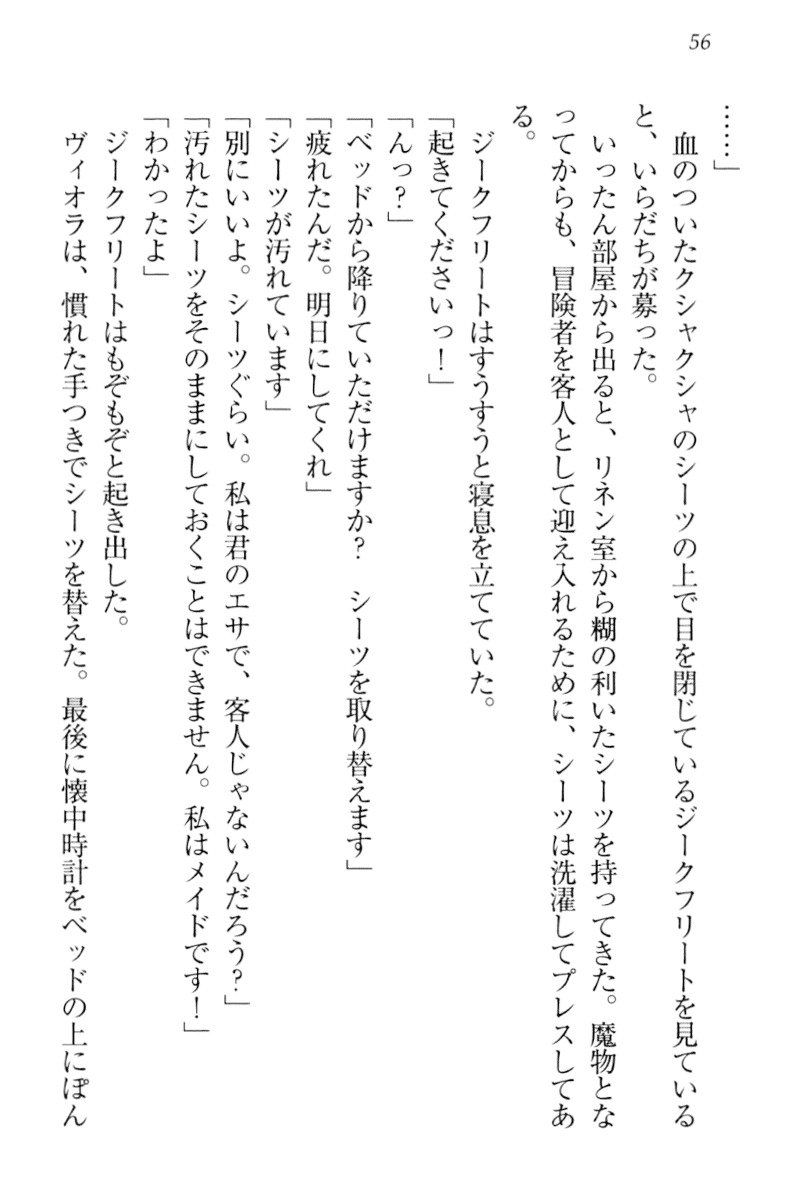 56
……」
　血のついたクシャクシャのシーツの上で目を閉じているジークフリートを見ている
と、いらだちが募った。
　いったん部屋から出ると、リネン室から糊の利いたシーツを持ってきた。魔物とな
ってからも、冒険者を客人として迎え入れるために、シーツは洗濯してプレスしてあ
る。
　ジークフリートはすうすうと寝息を立てていた。
「起きてくださいっ！」
「んっ？」
「ベッドから降りていただけますか？　シーツを取り替えます」
「疲れたんだ。明日にしてくれ」
「シーツが汚れています」
「別にいいよ。シーツぐらい。私は君のエサで、客人じゃないんだろう？」
「汚れたシーツをそのままにしておくことはできません。私はメイドです！」
「わかったよ」
　ジークフリートはもぞもぞと起き出した。
　ヴィオラは、慣れた手つきでシーツを替えた。最後に懐中時計をベッドの上にぽん